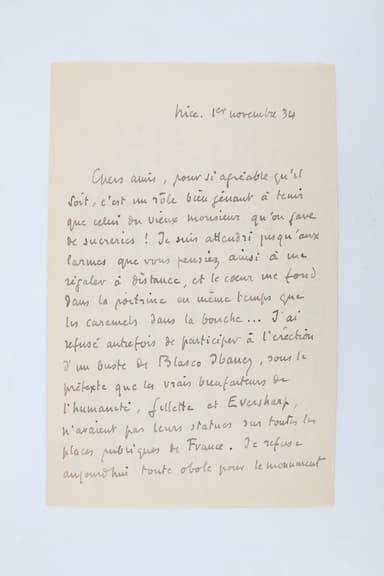 Nice. 1er novembre 34
Chers amis, pour si agréable qu'il
soit, c'est un rôle bien gênant à tenir
que celui du vieux monsieur qu'on gave
de sucreries ! Je suis attendri jusqu'aux
larmes que vous pensiez ainsi à me
régaler à distance, et le coeur me fond
dans la poitrine en même temps que
les caramels dans la bouche... J'ai
refusé autrefois de participer à l'érection
d'un buste de Blasco Ibanez, sous le
prétexte que les vrais bienfaiteurs de
l'humanité, Gillette et Eversharp,
n'avaient pas leurs statues sur toutes les
places publiques de France. Je refuse
aujourd'hui toute obole pour le monument